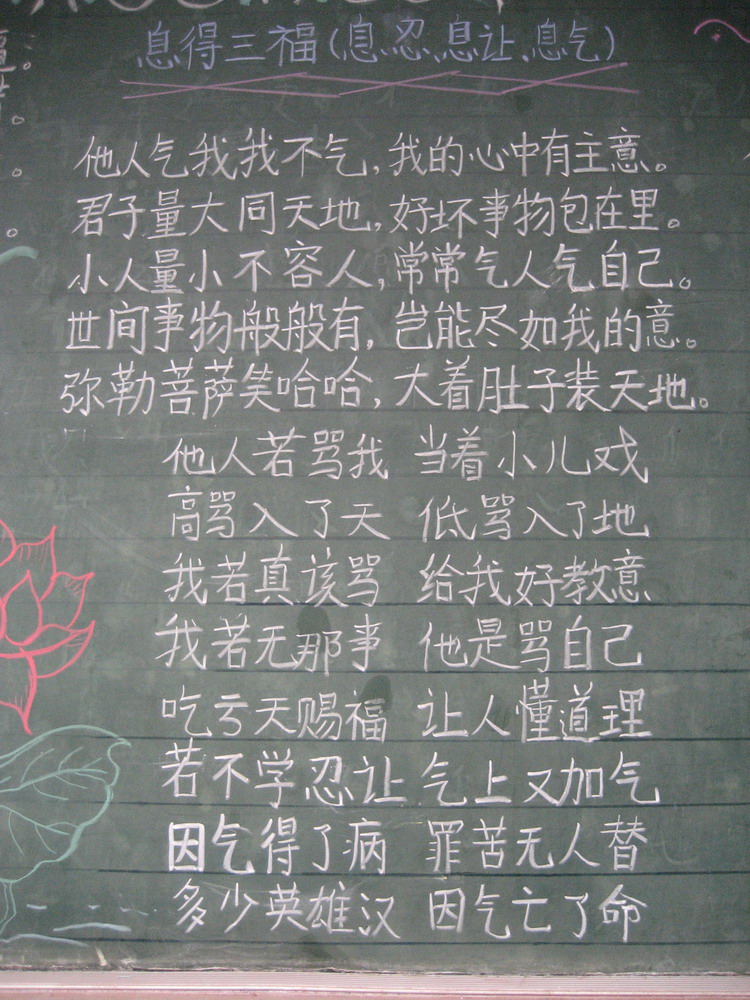 息得三福(息忍.息让.息气)
他人气我我不气,我的心中有主意。
君子量大同天地,好坏事物包在里。
小人量小不容人,常常气人气自己。
世间事物般般有,岂能尽如我的意。
弥勒菩萨笑哈哈,大着肚子装天地。
他人若骂我 当着小儿戏
高骂入了天 低骂入了地
我若真该骂 给我好教意
我若无那事 他是骂自己
吃亏天赐福 让人懂道理
若不学忍让 气上又加气
因气得了病 罪苦无人替
多少英雄汉 因气亡了命